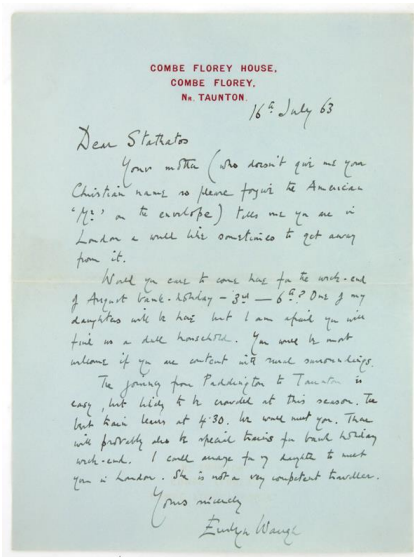 COMBE FLOREY HOUSE,
COMBE FLOREY,
NR. TAUNTON.
16th July 63
Dear Stathatos
Your mother (who doesn't give me your
Christian name so please forgive the American
'Mr' on the envelope) tells me you are in
London & would like sometimes to get away
from it.
Would you care to come here for the week-end
of August bank-holiday – 3rd – 6th? One of my
daughters will be here but I am afraid you will
find us a dull household. You would be most
welcome if you are content with rural surroundings.
The journey from Paddington to Taunton is
easy, but likely to be crowded at this season. The
best train leaves at 4.30. We would meet you. There
will probably also be special trains for bank holiday
week-end. I could arrange for my daughter to meet
you in London. She is not a very competent traveller.
Yours sincerely
Evelyn Waugh